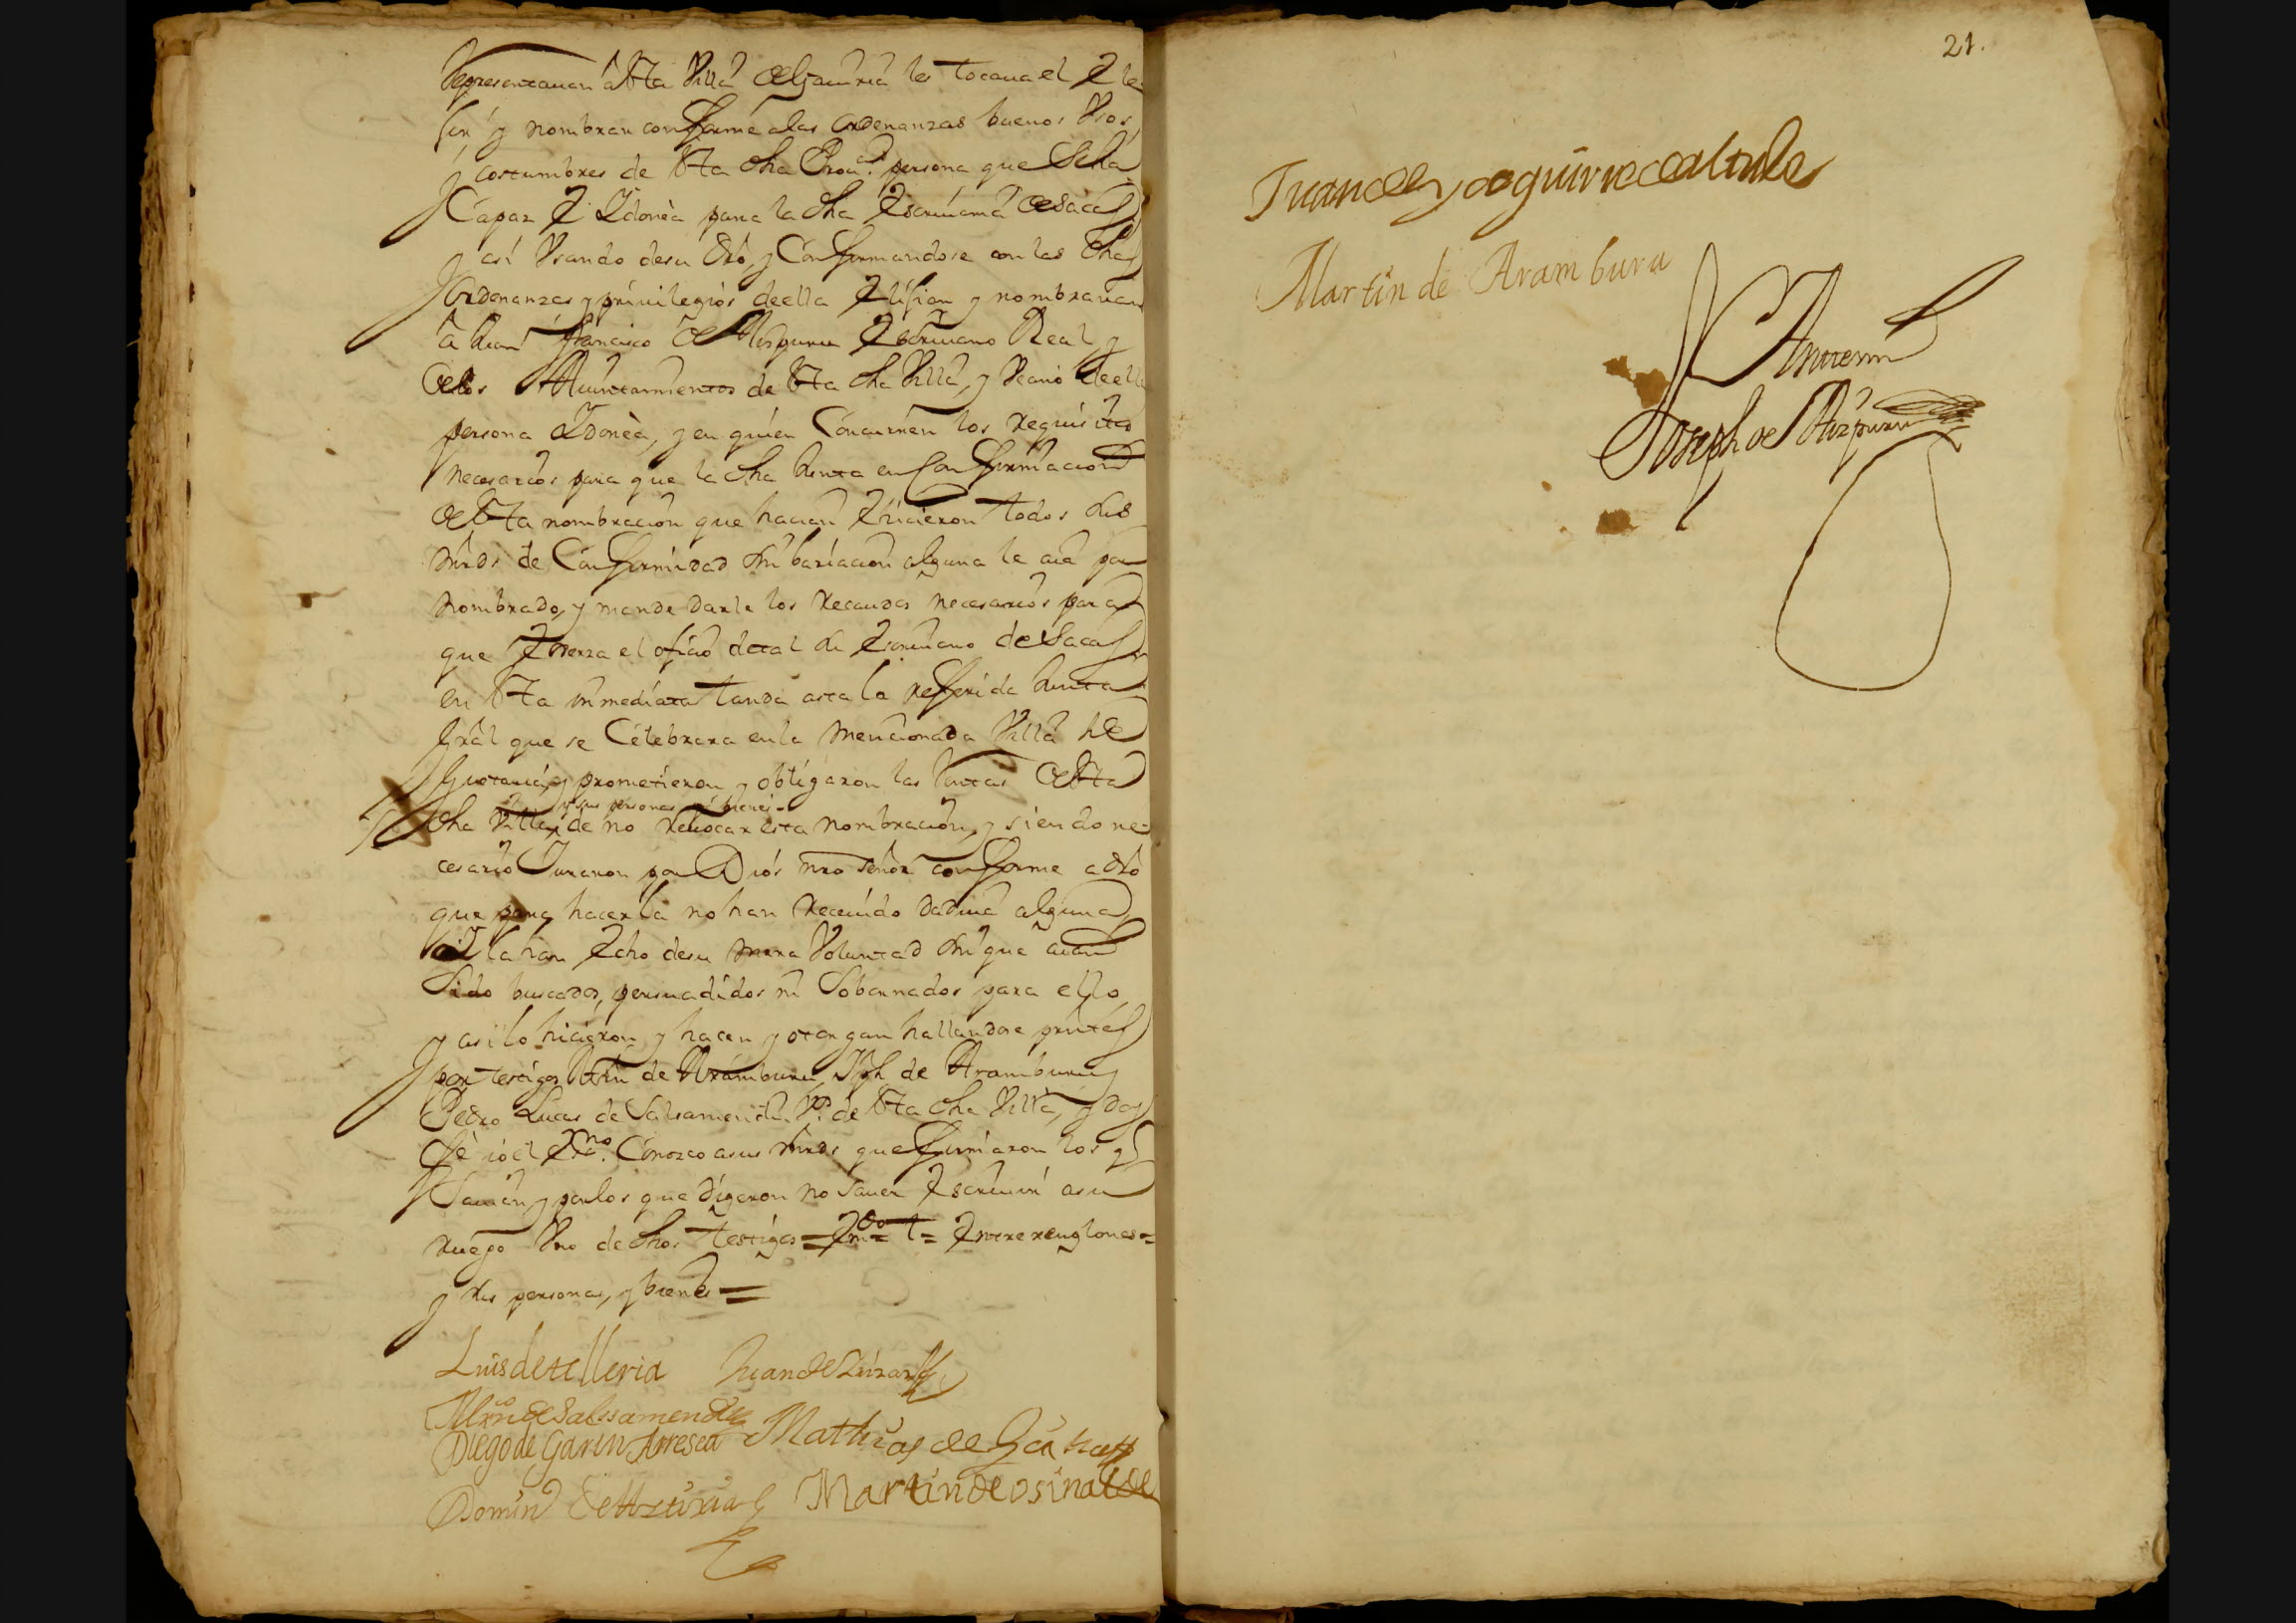 Representauan a esta Villa de Segura les tocaua el Ele
jir, y nombrar conforme a las ordenanzas buenos Vsos,
y costumbres de esta dha Prou.ª persona que sea
Capaz E Idonèa para la dha Escriuania de sacas
y asi Vsando de su dro, y Conformandose con las dhas
Ordenanzas y priuilegios de ella Elijian y nombrauan
a Juan francisco de Aizpuru Escriuano Real y
de los Aiuntamientos de esta dha Villa, y Vecino de ella
persona Idonèa, y en quien Concurren los requisitos
necesarios para que la dha Junta en Confirmacion
de esta nombracion que hacian E hicieron todos sus
mrds de Conformidad sin bariacion alguna le aia por
nombrado, y mande darle los recaudos necesarios para
que Exerza el ofizio de tal Escriuano de Sacas
en esta inmediata tanda asta la referida Junta
Gral que se Celebrara en la mencionada Villa de
Guetaria, y prometieron y obligaron las Juntas de esta
y sus personas, y bienes
dha Villa, de no reuocar esta nombracion, y siendo ne-
cesario Juraron por Dios nro señor conforme a dro
que para hacerla no han receuido dadiua alguna
la han Echo de su mera Voluntad sin que aian
Sido buscados, persuadidos ni Sobornados para ello
y asi lo hicieron y hacen y otorgan hallandose prntes
por testigos Mrn de Aramburu, Jph de Aramburu y
Pedro Lucas de Salsamendi Vº de esta dha Villa, y doy
fè io el Esno. Conozco a sus mrds que firmaron los q
Sauian, y por los que digeron no sauer Escriuir a su
ruego Vno de dhos testigos = Emdo = l = Entrerenglones =
y sus personas, y bienes =
Luis de telleria Juan de
Mrn de Salssamendi
Diego de Garin Arresea Mathias de
Domin de Martin de osinalde
21.
Juan de aguirre
Martin de Aramburu
Antemi
Joseph de Aizpuru